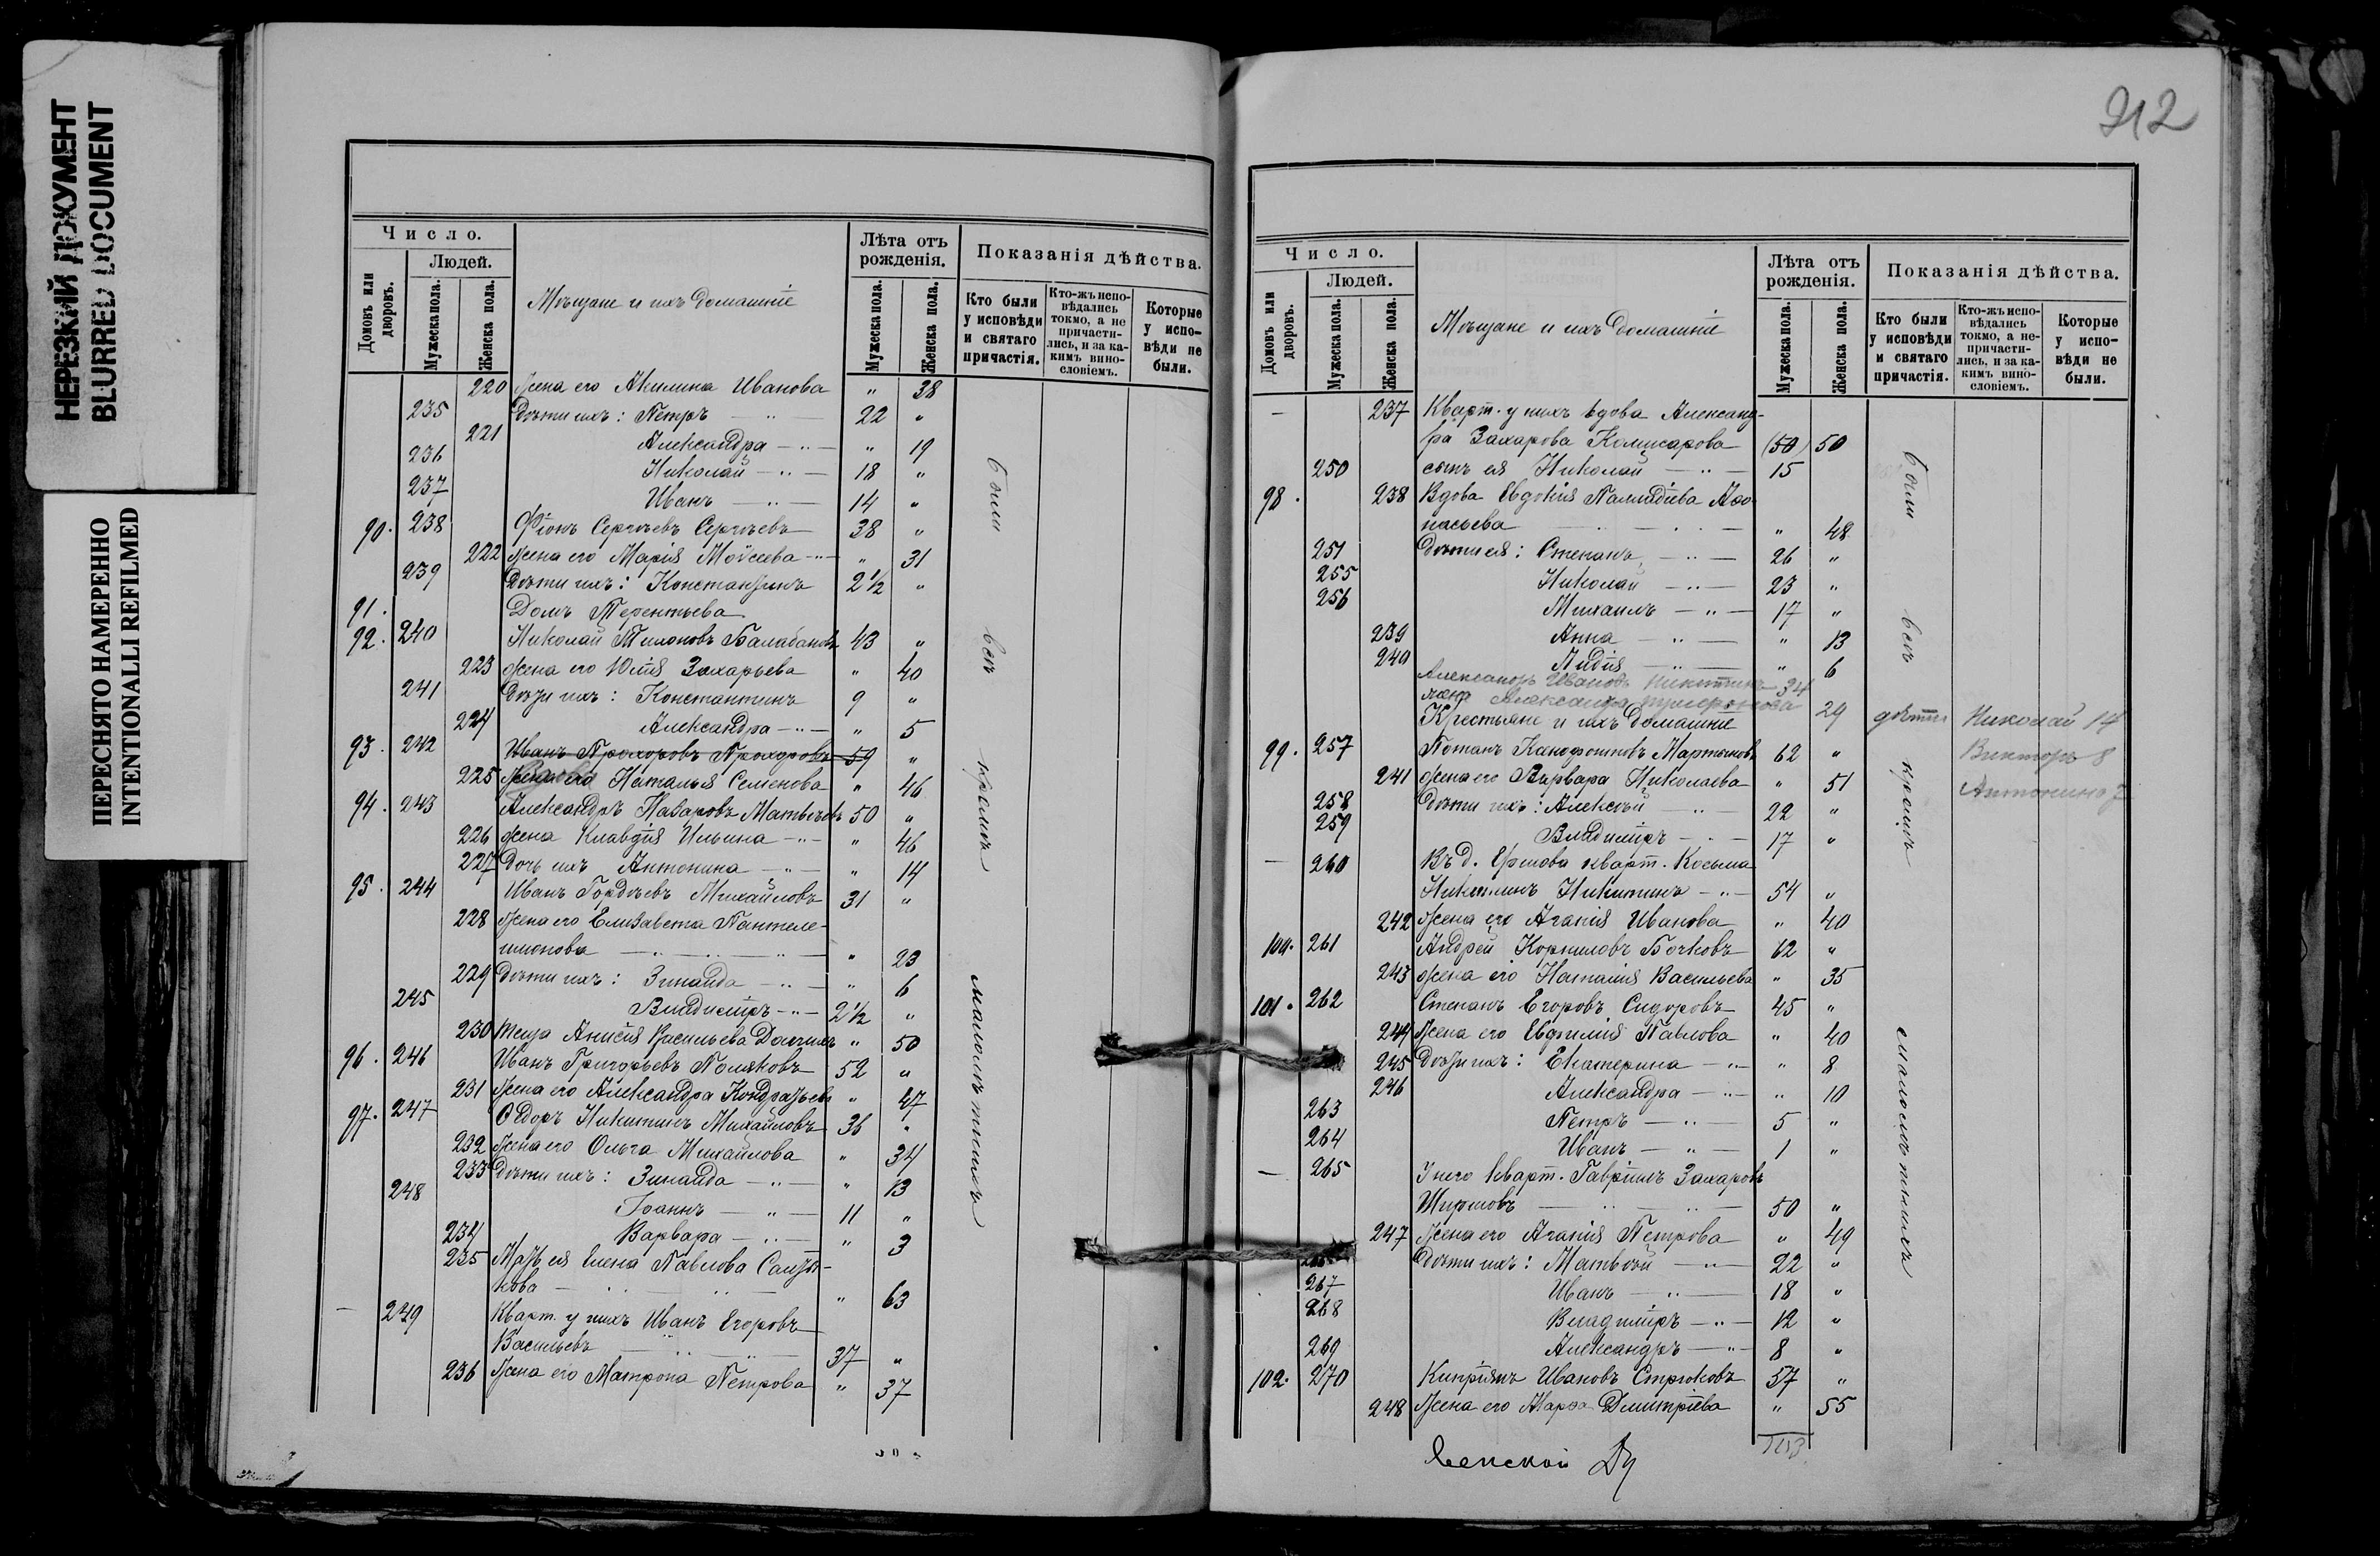 НЕРЕЗКИЙ ДОКУМЕНТ
BLURRED DOCUMENT
ПЕРЕСНЯТО НАМЕРЕННО
INTENTIONALLI REFILMED
Число.
Людей.
Домовъ или дворовъ.
Мужеска пола.
Женска пола.
Мѣщане и ихъ домашніе
Лѣта отъ рожденія.
Мужеска пола.
Женска пола.
Показанія дѣйства.
Кто были у исповѣди и святаго причастія.
Кто-жъ исповѣдались токмо, а не причастились, и за какимъ винословіемъ.
Которые у исповѣди не были.
220 Жена его Акилина Иванова " 38
235 Дѣти ихъ: Петръ — " 22 "
221 Александра — " — " 19
236 Николай — " — 18 "
237 Иванъ — " — 14 "
90. 238 Фіонъ Сергѣевъ Сергѣевъ 38 "
222 Жена его Марія Моѵсеева — " — " 31
239 Дѣти ихъ: Константинъ 2½ "
91. Домъ Терентьева
92. 240 Николай Тихоновъ Балабановъ 43 "
223 Жена его Юлія Захарьева " 40
241 Дѣти ихъ: Константинъ 9 "
224 Александра — " — " 5
93. 242 Иванъ Прохоровъ Прохоровъ 59 "
225 Жена его Наталья Семенова " 46
94. 243 Александръ Назаровъ Матвѣевъ 50 "
226 Жена Клавдія Ильина — " — " 46
227 Дочь ихъ Антонина — " — " 14
95. 244 Иванъ Гордѣевъ Михайловъ 31 "
228 Жена его Елизавета Пантеле-
имонова — " — " — " 23
229 Дѣти ихъ: Зинаида — " — " 6
245 Владиміръ — " — 2½ "
230 Теща Анисія Васильева " 50
96. 246 Иванъ Григорьевъ Поляковъ 52 "
231 Жена его Александра Кондратьева " 47
97. 247 Ѳедоръ Никитинъ Михайловъ 36 "
232 Жена его Ольга Михайлова " 34
233 Дѣти ихъ: Зинаида — " — " 13
248 Іоаннъ — " — 11 "
234 Варвара — " — " 3
235 Мать ея Елена Павлова
кова — " — " — " 63
— 249 Кварт. у нихъ Иванъ Егоровъ
Васильевъ — " — 37 "
236 Жена его Матрона Петрова " 37
были
всѣ
кромѣ
малолѣтнихъ
212
Число.
Людей.
Домовъ или дворовъ.
Мужеска пола.
Женска пола.
Мѣщане и ихъ домашніе
Лѣта отъ рожденія.
Мужеска пола.
Женска пола.
Показанія дѣйства.
Кто были у исповѣди и святаго причастія.
Кто-жъ исповѣдались токмо, а не-причастились, и за какимъ винословіемъ.
Которые у исповѣди не были.
— 237 Кварт. у нихъ вдова Александ-
ра Захарова Комисарова (50) 50
250 сынъ ея Николай — " — 15
98. 238 Вдова Евдокія Палладіева Аѳо-
насьева — " — " 48
251 Дѣти ея: Степанъ — " — 26 "
255 Николай — " — 23 "
256 Михаилъ — " — 17 "
239 Анна — " — " 13
240 Лидія — " — " 6
Александръ Ивановъ Никитинъ 34
жена Александра 29 дѣти Николай 14
Крестьяне и ихъ домашніе
Викторъ 8
99. 257 Потапъ Мартыновъ 62 "
Антонина 7
241 Жена его Варвара Николаева " 51
258 Дѣти ихъ: Алексѣй — " — 22 "
259 Владиміръ — " — 17 "
— 260 Въ д. Ершова кварт. Косьма
Никитинъ Никитинъ — " — 54 "
242 Жена его Агапія Иванова " 40
100. 261 Андрей Корниловъ Бочковъ 62 "
243 Жена его Наталія Васильева " 35
101. 262 Степанъ Егоровъ Сидоровъ 45 "
244 Жена его Евфимія Павлова " 40
245 Дѣти ихъ: Екатерина — " — " 8
246 Александра — " — " 10
263 Петръ — " — 5 "
264 Иванъ — " — 1 "
— 265 У него кварт. Гавріилъ Захаровъ
— " — " — 50 "
247 Жена его Агапія Петрова " 49
Дѣти ихъ: Матвѣй — " — 22 "
267 Иванъ — " — 18 "
268 Владиміръ — " — 12 "
269 Александръ — " — 8 "
102. 270 Кипріянъ Ивановъ Стрюковъ 57 "
248 Жена его Марѳа Дмитріева " 55
были
всѣ
кромѣ
малолѣтнихъ